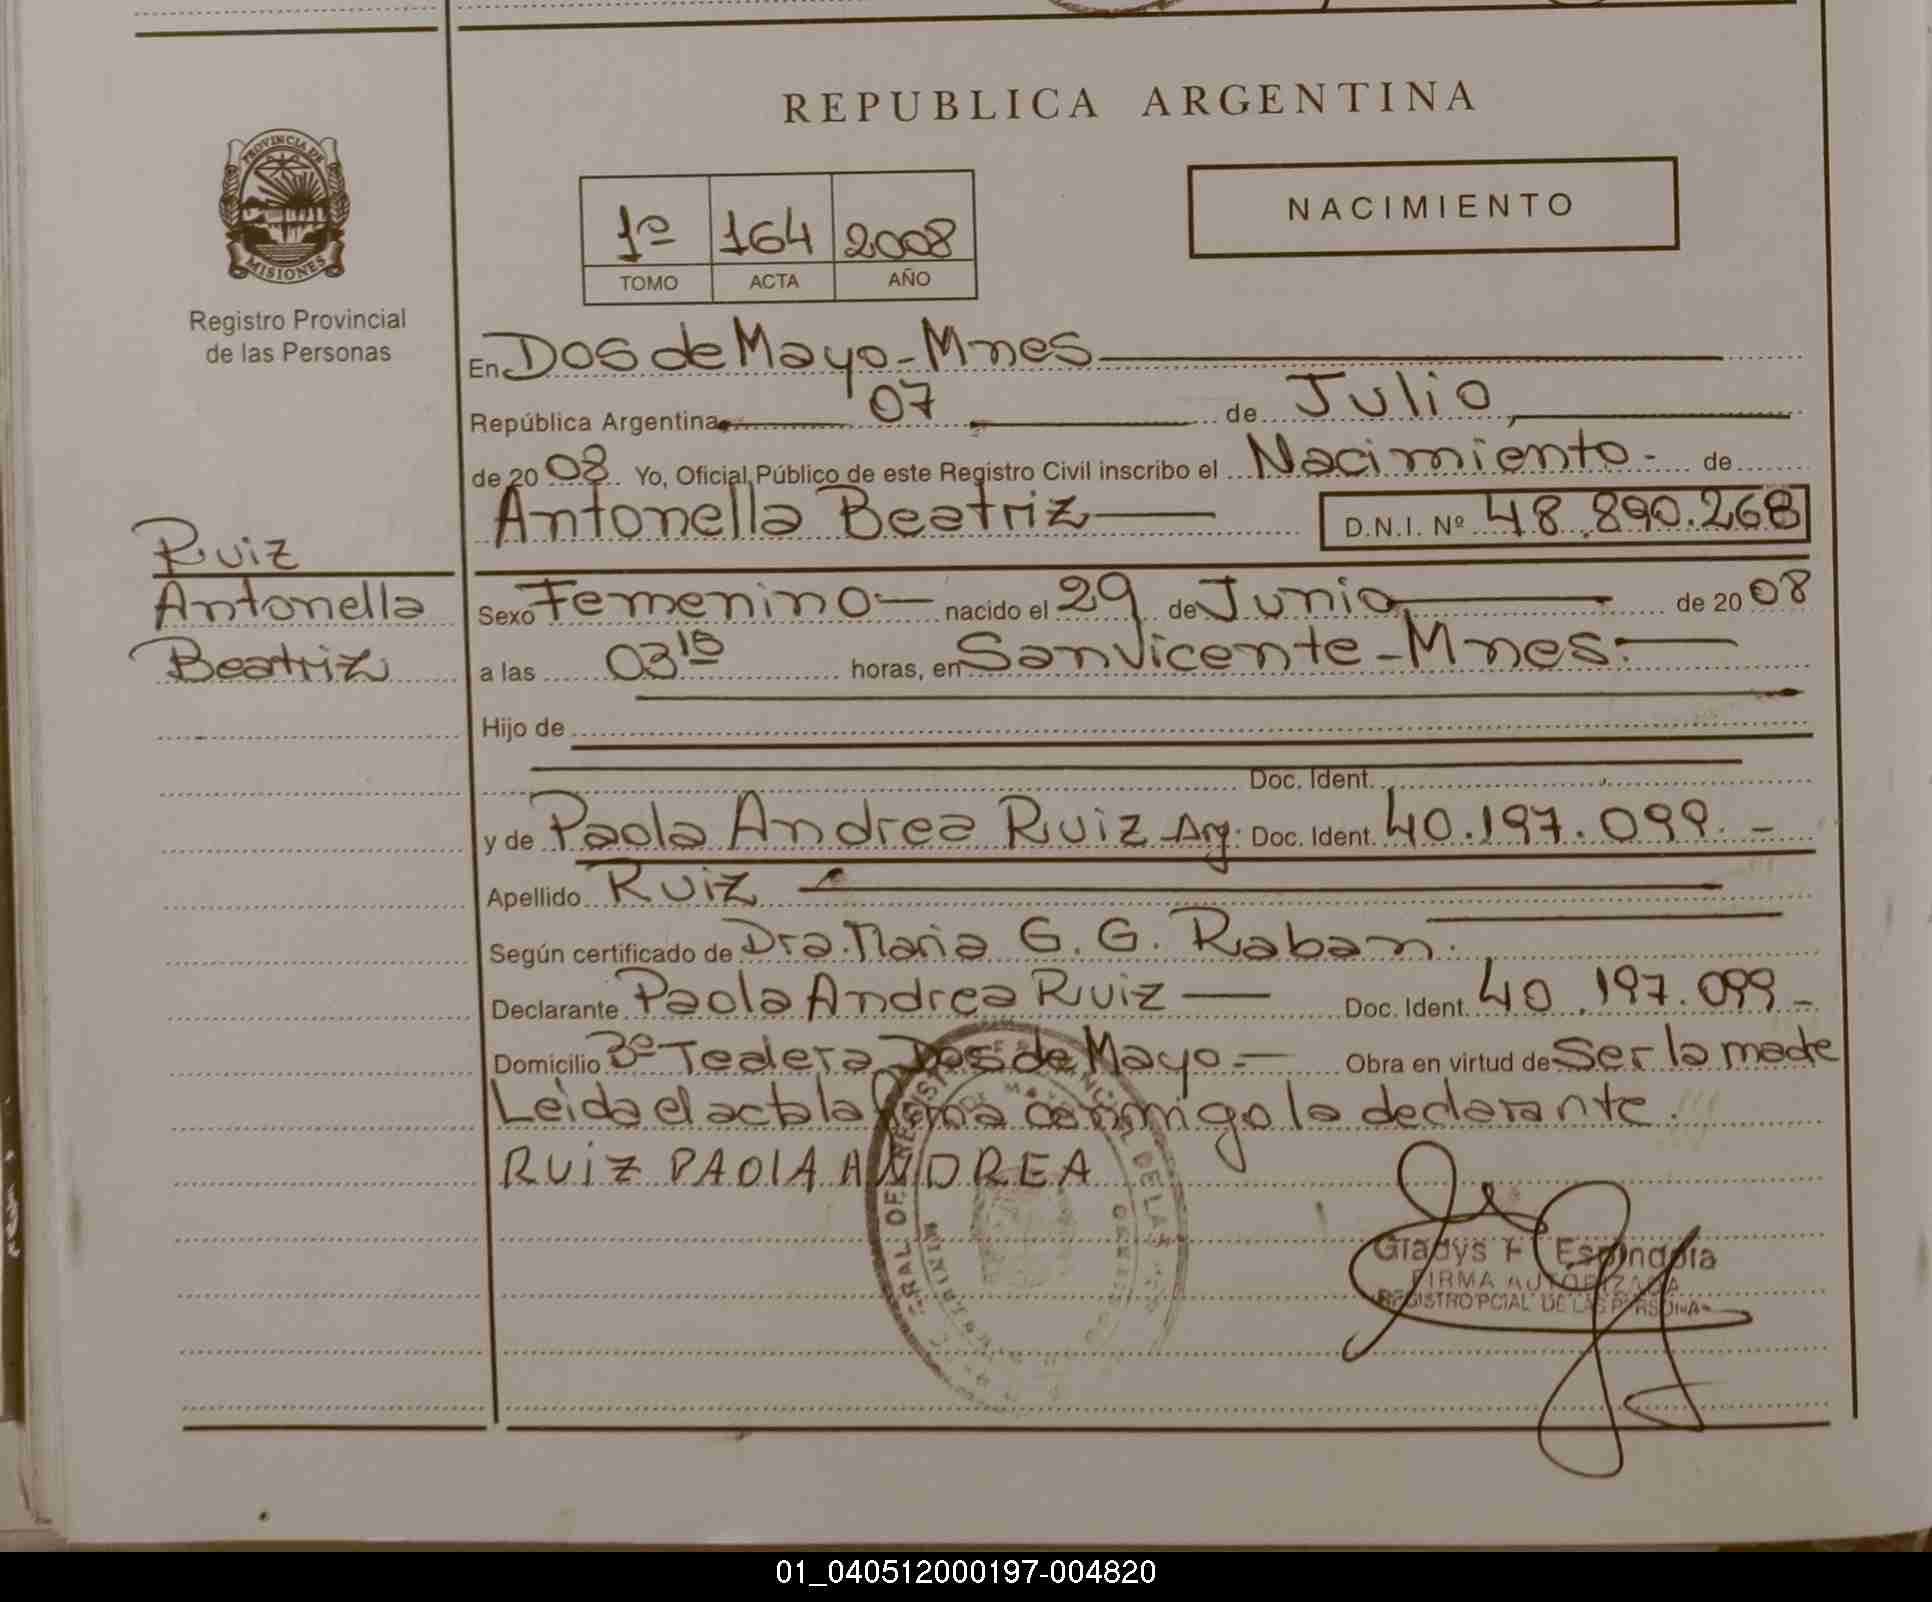 REPUBLICA ARGENTINA
PROVINCIA DE
MISIONES
Registro Provincial
de las Personas
NACIMIENTO
1º 164 2008
TOMO ACTA AÑO
En Dos de Mayo - Mnes
República Argentina 07 de Julio,
de 2008 Yo, Oficial Público de este Registro Civil inscribo el Nacimiento - de
Antonella Beatriz D.N.I. Nº 48.890.268
Ruiz
Antonella
Beatriz
Sexo Femenino nacido el 29 de Junio de 2008
a las 03 15 horas, en San Vicente - Mnes.
Hijo de
Doc. Ident.
y de Paola Andrea Ruiz Arg. Doc. Ident. 40.197.099.-
Apellido Ruiz
Según certificado de Dra. Maria G. G. Raban.
Declarante Paola Andrea Ruiz Doc. Ident. 40.197.099-
Domicilio 3º Tealera Dos de Mayo.- Obra en virtud de Ser la made
Leida el acta la firma conmigo la declarante.
RUIZ PAOLA ANDREA
Gladys F Espindola
FIRMA AUTORIZADA
REGISTRO PCIAL DE LAS PERSONAS
01_040512000197-004820